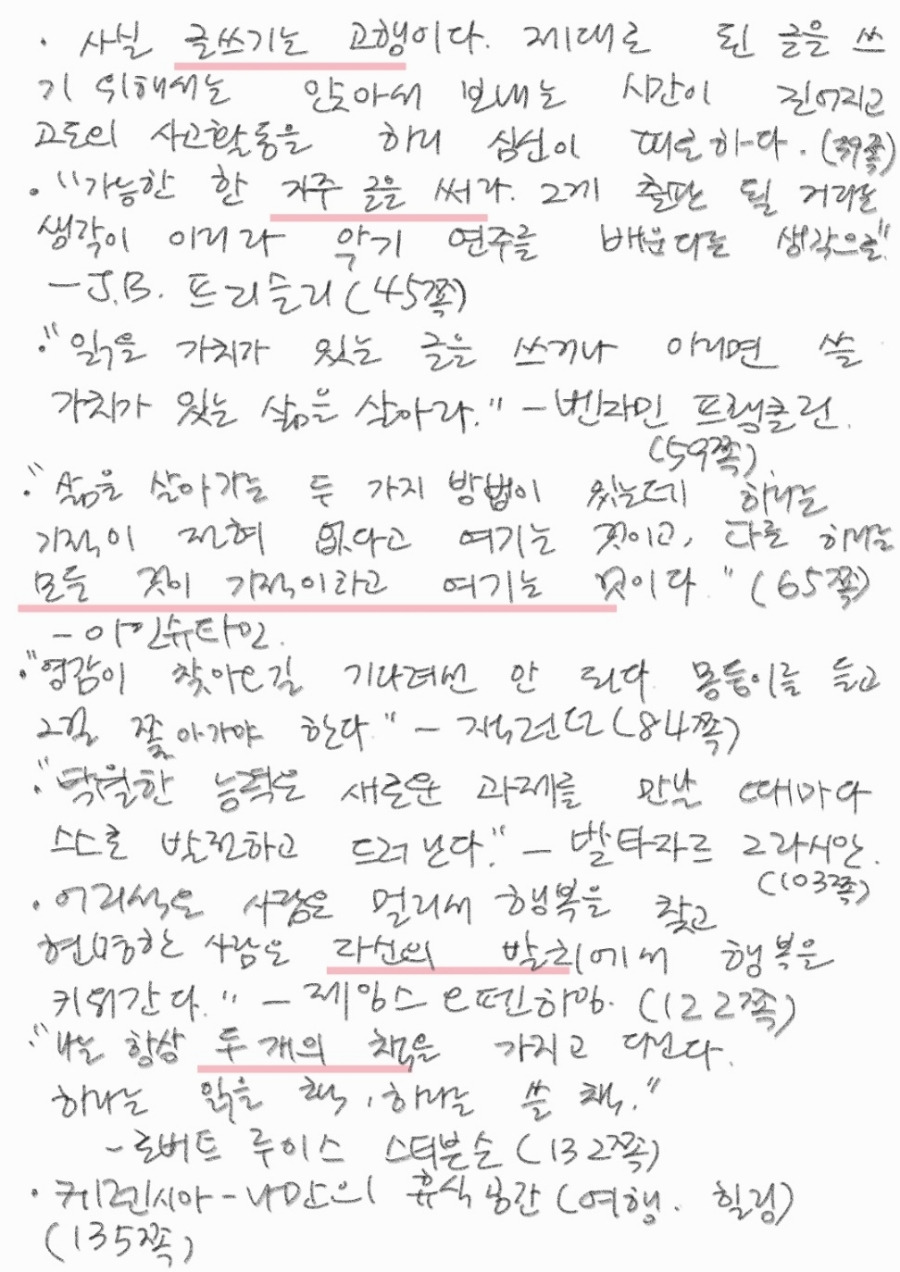 · 사실 글쓰기는 고행이다. 제대로 된 글을 쓰
기 위해서는 앉아서 보내는 시간이 길어지고
고도의 사고활동을 하니 심신이 피로하다. (39쪽)
· "가능한 한 자주 글을 써라. 그게 출판 될 거라는
생각이 아니라 악기 연주를 배운다는 생각으로"
- J.B. 프리슬리 (45쪽)
· "읽을 가치가 있는 글을 쓰거나 아니면 쓸
가치가 있는 삶을 살아라." - 벤자민 프랭클린.
(59쪽)
· "삶을 살아가는 두 가지 방법이 있는데 하나는
기적이 전혀 없다고 여기는 것이고, 다른 하나는
모든 것이 기적이라고 여기는 것이다." (65쪽)
- 아인슈타인.
· "영감이 찾아오길 기다려선 안 된다. 몽둥이를 들고
그걸 쫓아가야 한다." - 잭런던 (84쪽)
· "탁월한 능력은 새로운 과제를 만날 때마다
스스로 발전하고 드러난다." - 발타자르 그라시안.
(103쪽)
· 어리석은 사람은 멀리서 행복을 찾고
현명한 사람은 자신의 발치에서 행복을
키워간다." - 제임스 오펜하임. (122쪽)
· "나는 항상 두 개의 책을 가지고 다닌다.
하나는 읽을 책, 하나는 쓸 책."
- 로버트 루이스 스티븐슨 (132쪽)
· 케렌시아 - 나만의 휴식공간 (여행. 힐링)
(135쪽)